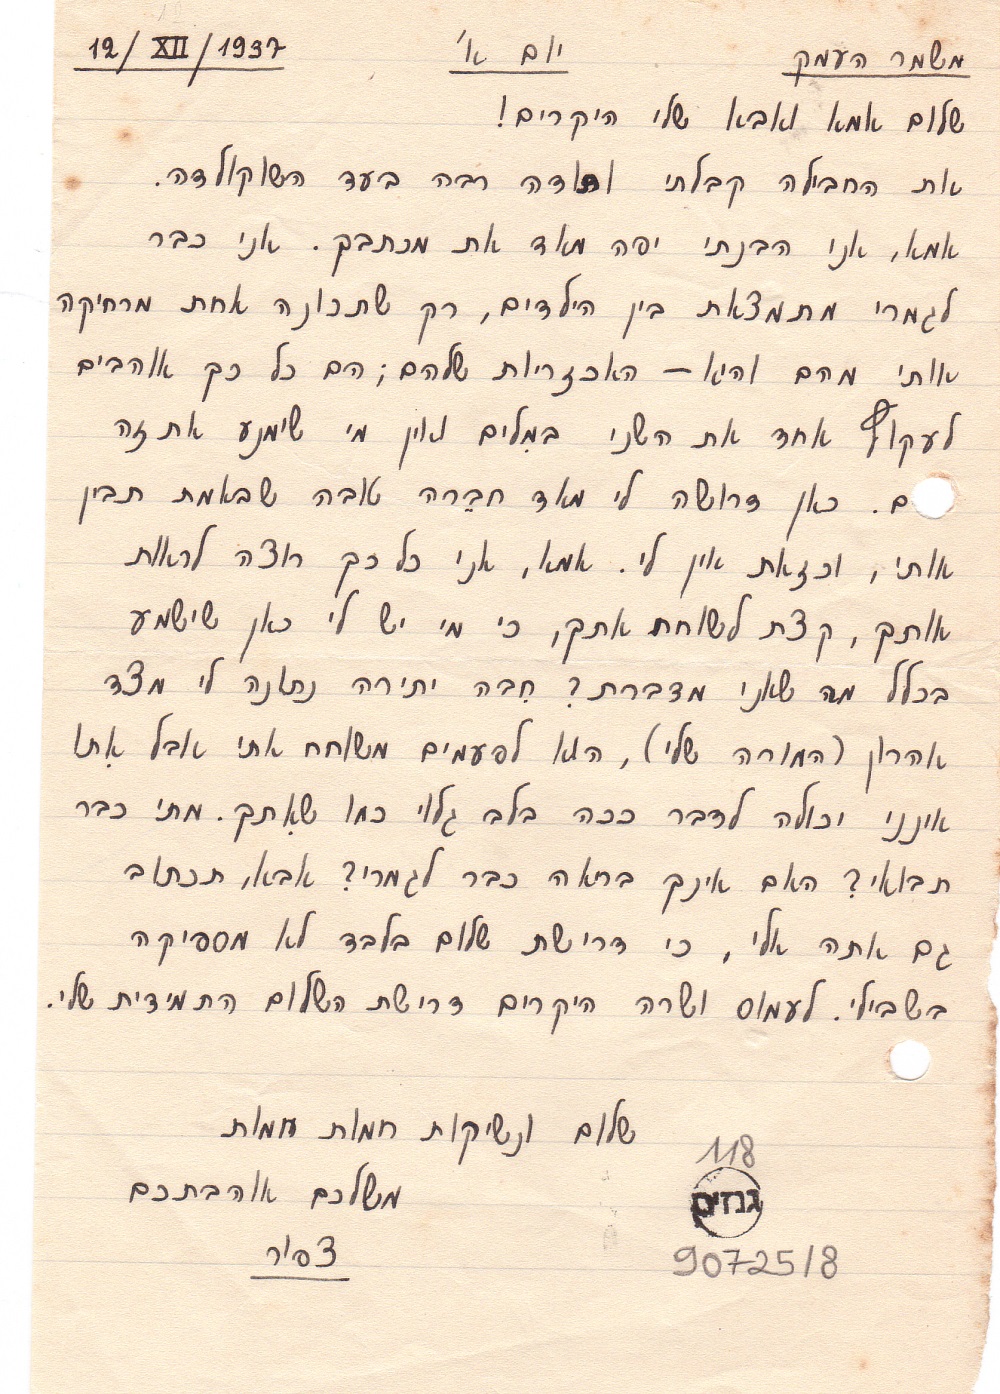 משמר העמק יום א' 12/XII/1937
שלום אמא ואבא שלי היקרים!
את החבילה קבלתי ותודה רבה בעד השוקולדה.
אמא, אני הבנתי יפה מאד את מכתבך. אני כבר
לגמרי מתמצאת בין הילדים, רק שתכונה אחת מרחיקה
אותי מהם והיא – האכזריות שלהם; הם כל כך אוהבים
לעקוץ אחד את השני במִלים ואין מי שימנע את זה
ם. כאן דרושה לי מאד חבֵרה טובה שבאמת תבין
אותי, וכזאת אין לי. אמא, אני כל כך רוצה לראות
אותך, קצת לשוחח אתך, כי מי יש לי כאן שישמע
בכלל מה שאני מדברת? חִבה יתירה נתונה לי מצד
אהרון (המורה שלי), הוא לפעמים משוחח אתי אבל אִתו
אינני יכולה לדבר ככה בלב גלוי כמו שאִתך. מתי כבר
תבואי? האם אינך בריאה כבר לגמרי? אבא, תכתוב
גם אתה אלי, כי דרישת שלום בלבד לא מספיקה
בשבילי. לעמוס ושרה היקרים דרישת השלום התמידית שלי.
שלום ונשיקות חמות חמות
משלכם אוהבתכם
צפור
118
גנזים
90725/8